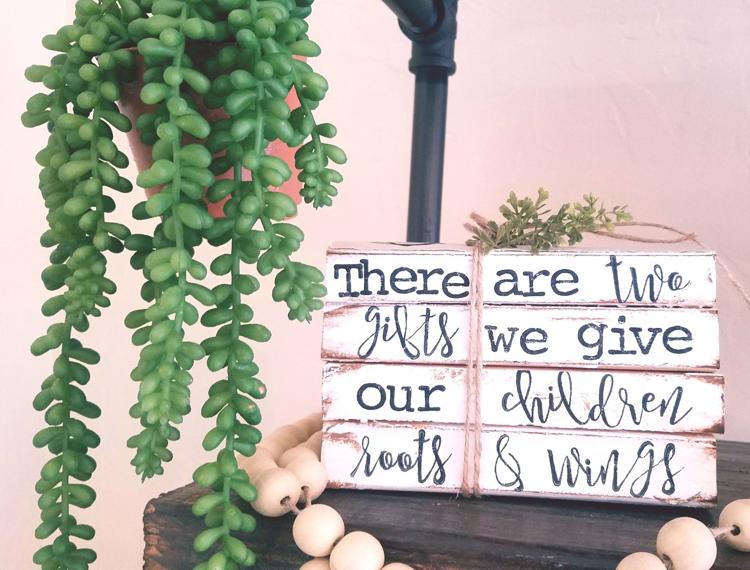 There are two
gifts we give
our children
roots & wings